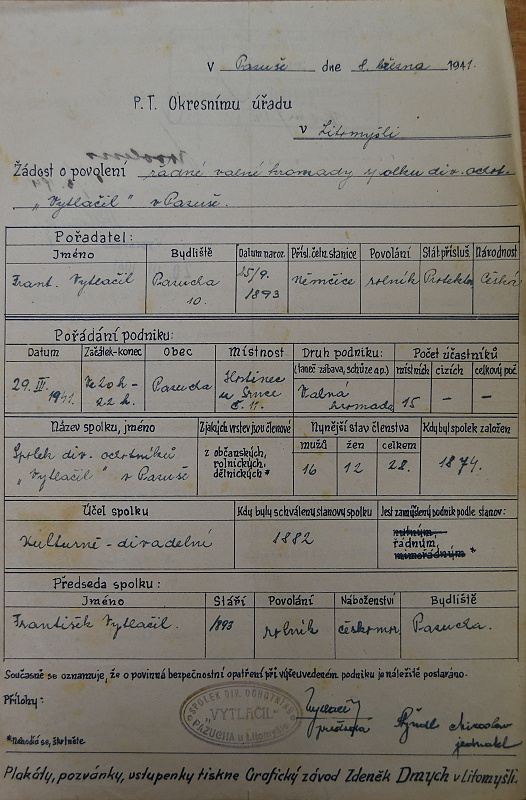 V Pazuše dne 8. března 1941.
P. T. Okresnímu úřadu
v Litomyšli
Žádost o povolení řádné valné hromady spolku div. ochot.
"Vytlačil" v Pazuše.
Pořadatel:
Jméno Bydliště Datum naroz. Přísl. četn. stanice Povolání Stát. příslуš. Národnost
Frant. Vytlačil Pazucha 10. 25/9. 1893 Němčice rolník Protektor Česká
Pořádání podniku:
Datum Začátek-konec Obec Místnost Druh podniku: (taneč. zábava, schůze a p.) Počet účastníků
místních cizích celkový poč.
29. III. 1941. Ve 20 h - 22 h. Pazucha Hostinec u Č. 11. Valná hromada 15 – –
Název spolku, jméno Z jakých vrstev jsou členové Nynější stav členstva Kdy byl spolek založen
mužů žen celkem
Spolek div. ochotníků "Vytlačil" v Pazuše z občanských, rolnických, dělnických * 16 12 28. 1874.
Účel spolku Kdy byly schváleny stanovy spolku Jest zamýšlený podnik podle stanov:
Kulturně - divadelní 1882 nutným, řádným, mimořádným *
Předseda spolku:
Jméno Stáří Povolání Náboženství Bydliště
František Vytlačil. 1893 rolník českomor. Pazucha.
Současně se oznamuje, že o povinná bezpečnostní opatření při výšeuvedeném podniku je náležitě postaráno.
Přílohy:
SPOLEK DIV. OCHOTNÍKŮ
"VYTLAČIL"
PAZUCHA u Litomyšle
Vytlačil
předseda
Miroslav
jednatel
*Nehodící se, škrtněte
Plakáty, pozvánky, vstupenky tiskne Grafický závod Zdeněk Drnych v Litomyšli.